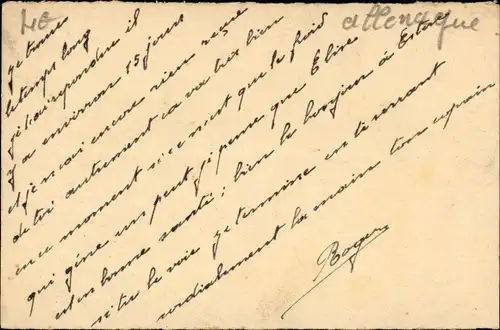 40
allemaque
je trouve
le temps long
que j'ai
répondre il
y a environ 15 jours
et je n'ai encore rien reçue
de toi autrement ca va très bien
en ce moment si ce n'est que le froid
qui gène un peut j'pense que Elise
est en bonne santé; bien le bonjour à Estor
si tu le voie je termine en te serrant
cordialement la main ton copain
Roger